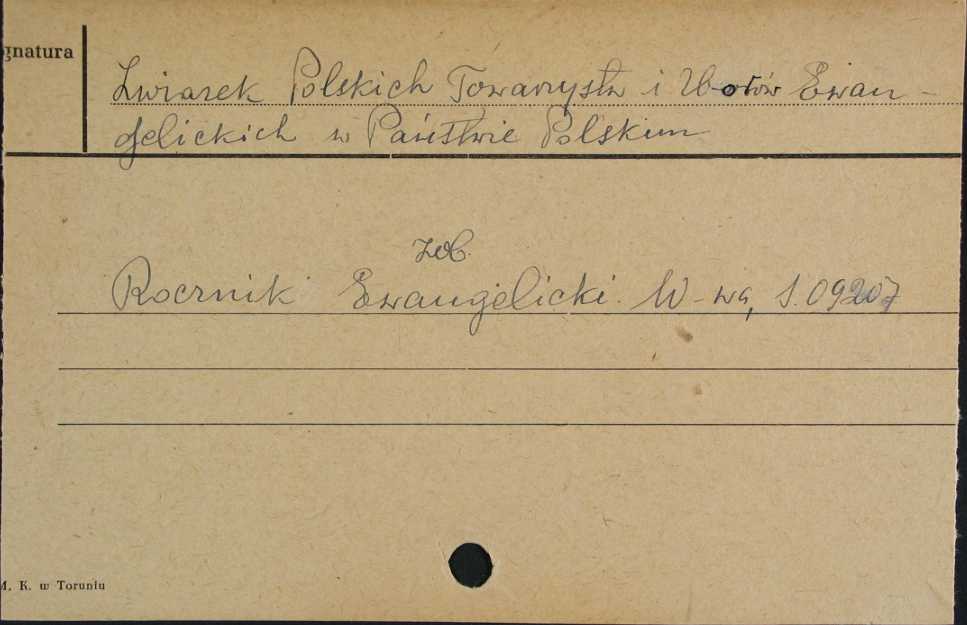 gnatura
Związek Polskich Towarzystw i Zborów Ewan-
gelickich w Państwie Polskim
zob.
Rocznik Ewangelicki. W-wa, S.09207
M. K. w Toruniu